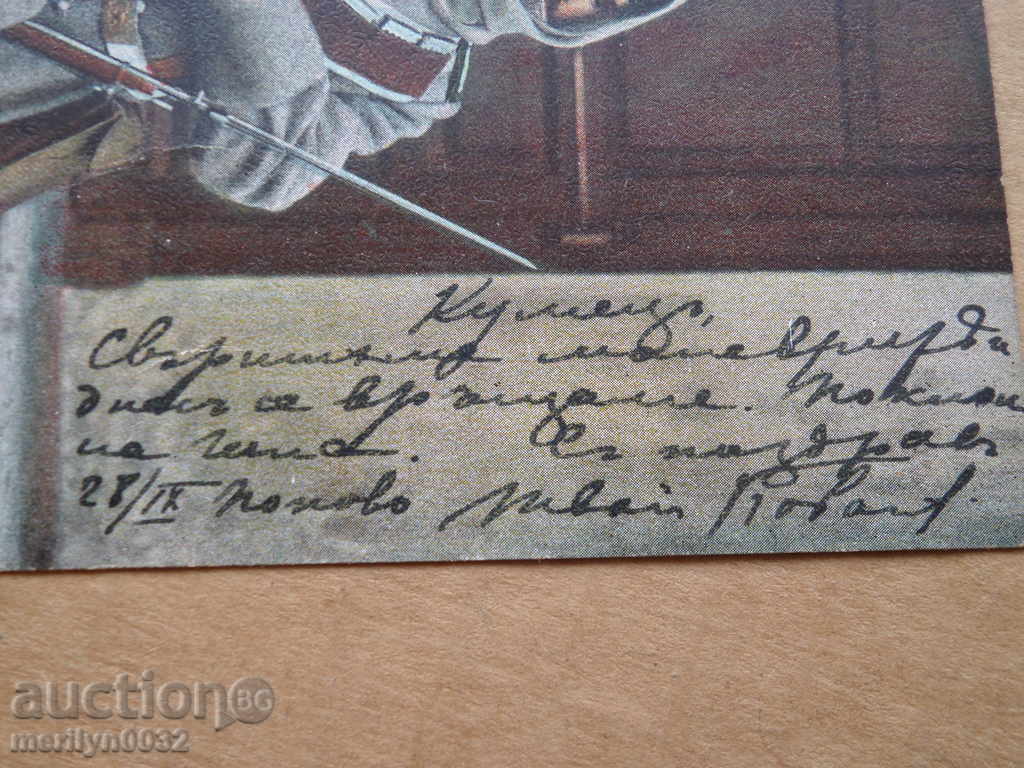 Кумецъ,
Свършихме маневрите и
днесъ се връщаме. Поклон
на
Съ поздравъ
28/IX Попово
auctionBG
merilyn0032